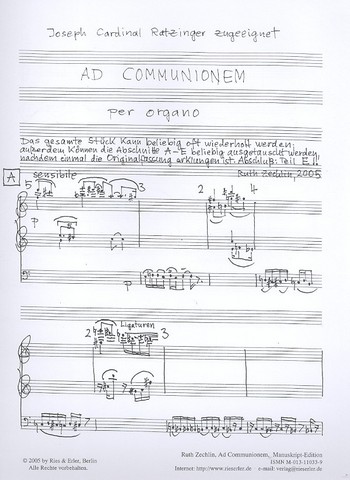 Joseph Cardinal Ratzinger zugeeignet
AD COMMUNIONEM
per organo
Das gesamte Stück kann beliebig oft wiederholt werden;
außerdem können die Abschnitte A–E beliebig ausgetauscht werden,
nachdem einmal die Originalfassung erklungen ist. Abschluß: Teil E!
Ruth Zechlin, 2005
A sensibile
5 3 2 4
p
p
Ligaturen
2 3
© 2005 by Ries & Erler, Berlin
Alle Rechte vorbehalten.
Ruth Zechlin, Ad Communionem, Manuskript-Edition
ISMN M-013-11033-9
Internet: http://www.rieserler.de e-mail: verlag@rieserler.de